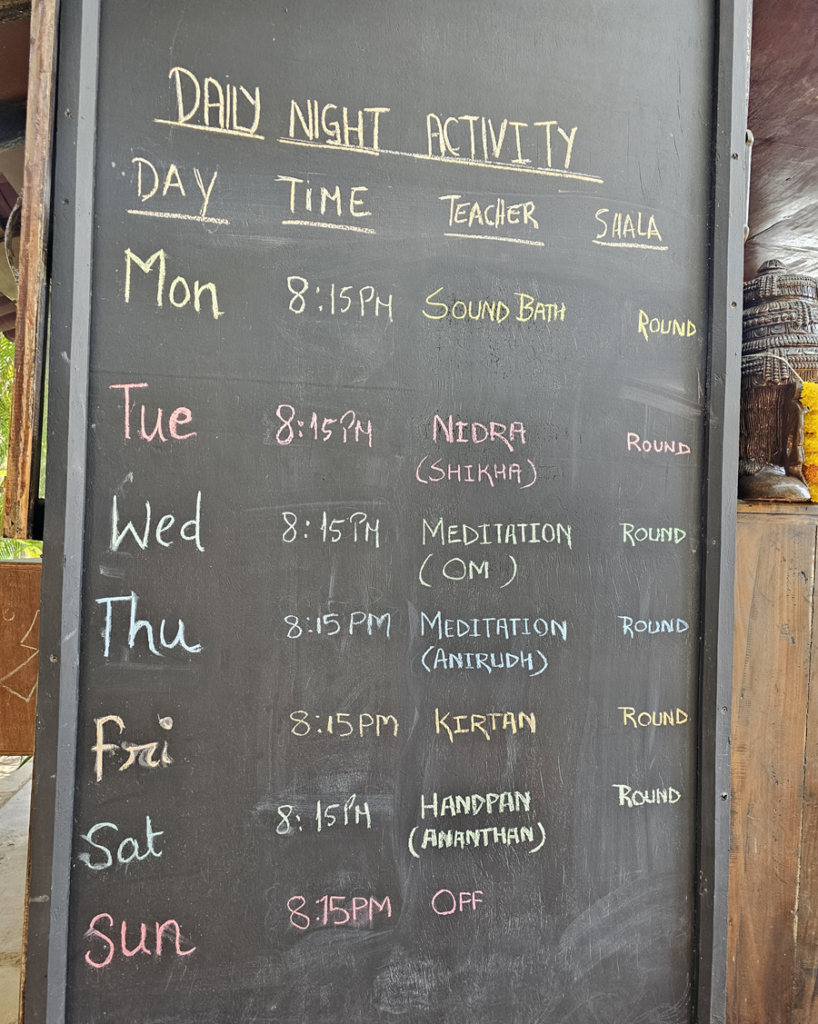 DAILY NIGHT ACTIVITY
DAY TIME TEACHER SHALA
Mon 8:15PM SOUND BATH ROUND
Tue 8:15PM NIDRA ROUND
(SHIKHA)
Wed 8:15PM MEDITATION ROUND
(OM)
Thu 8:15PM MEDITATION ROUND
(ANIRUDH)
Fri 8:15PM KIRTAN ROUND
Sat 8:15PM HANDPAN ROUND
(ANANTHAN)
Sun 8:15PM OFF